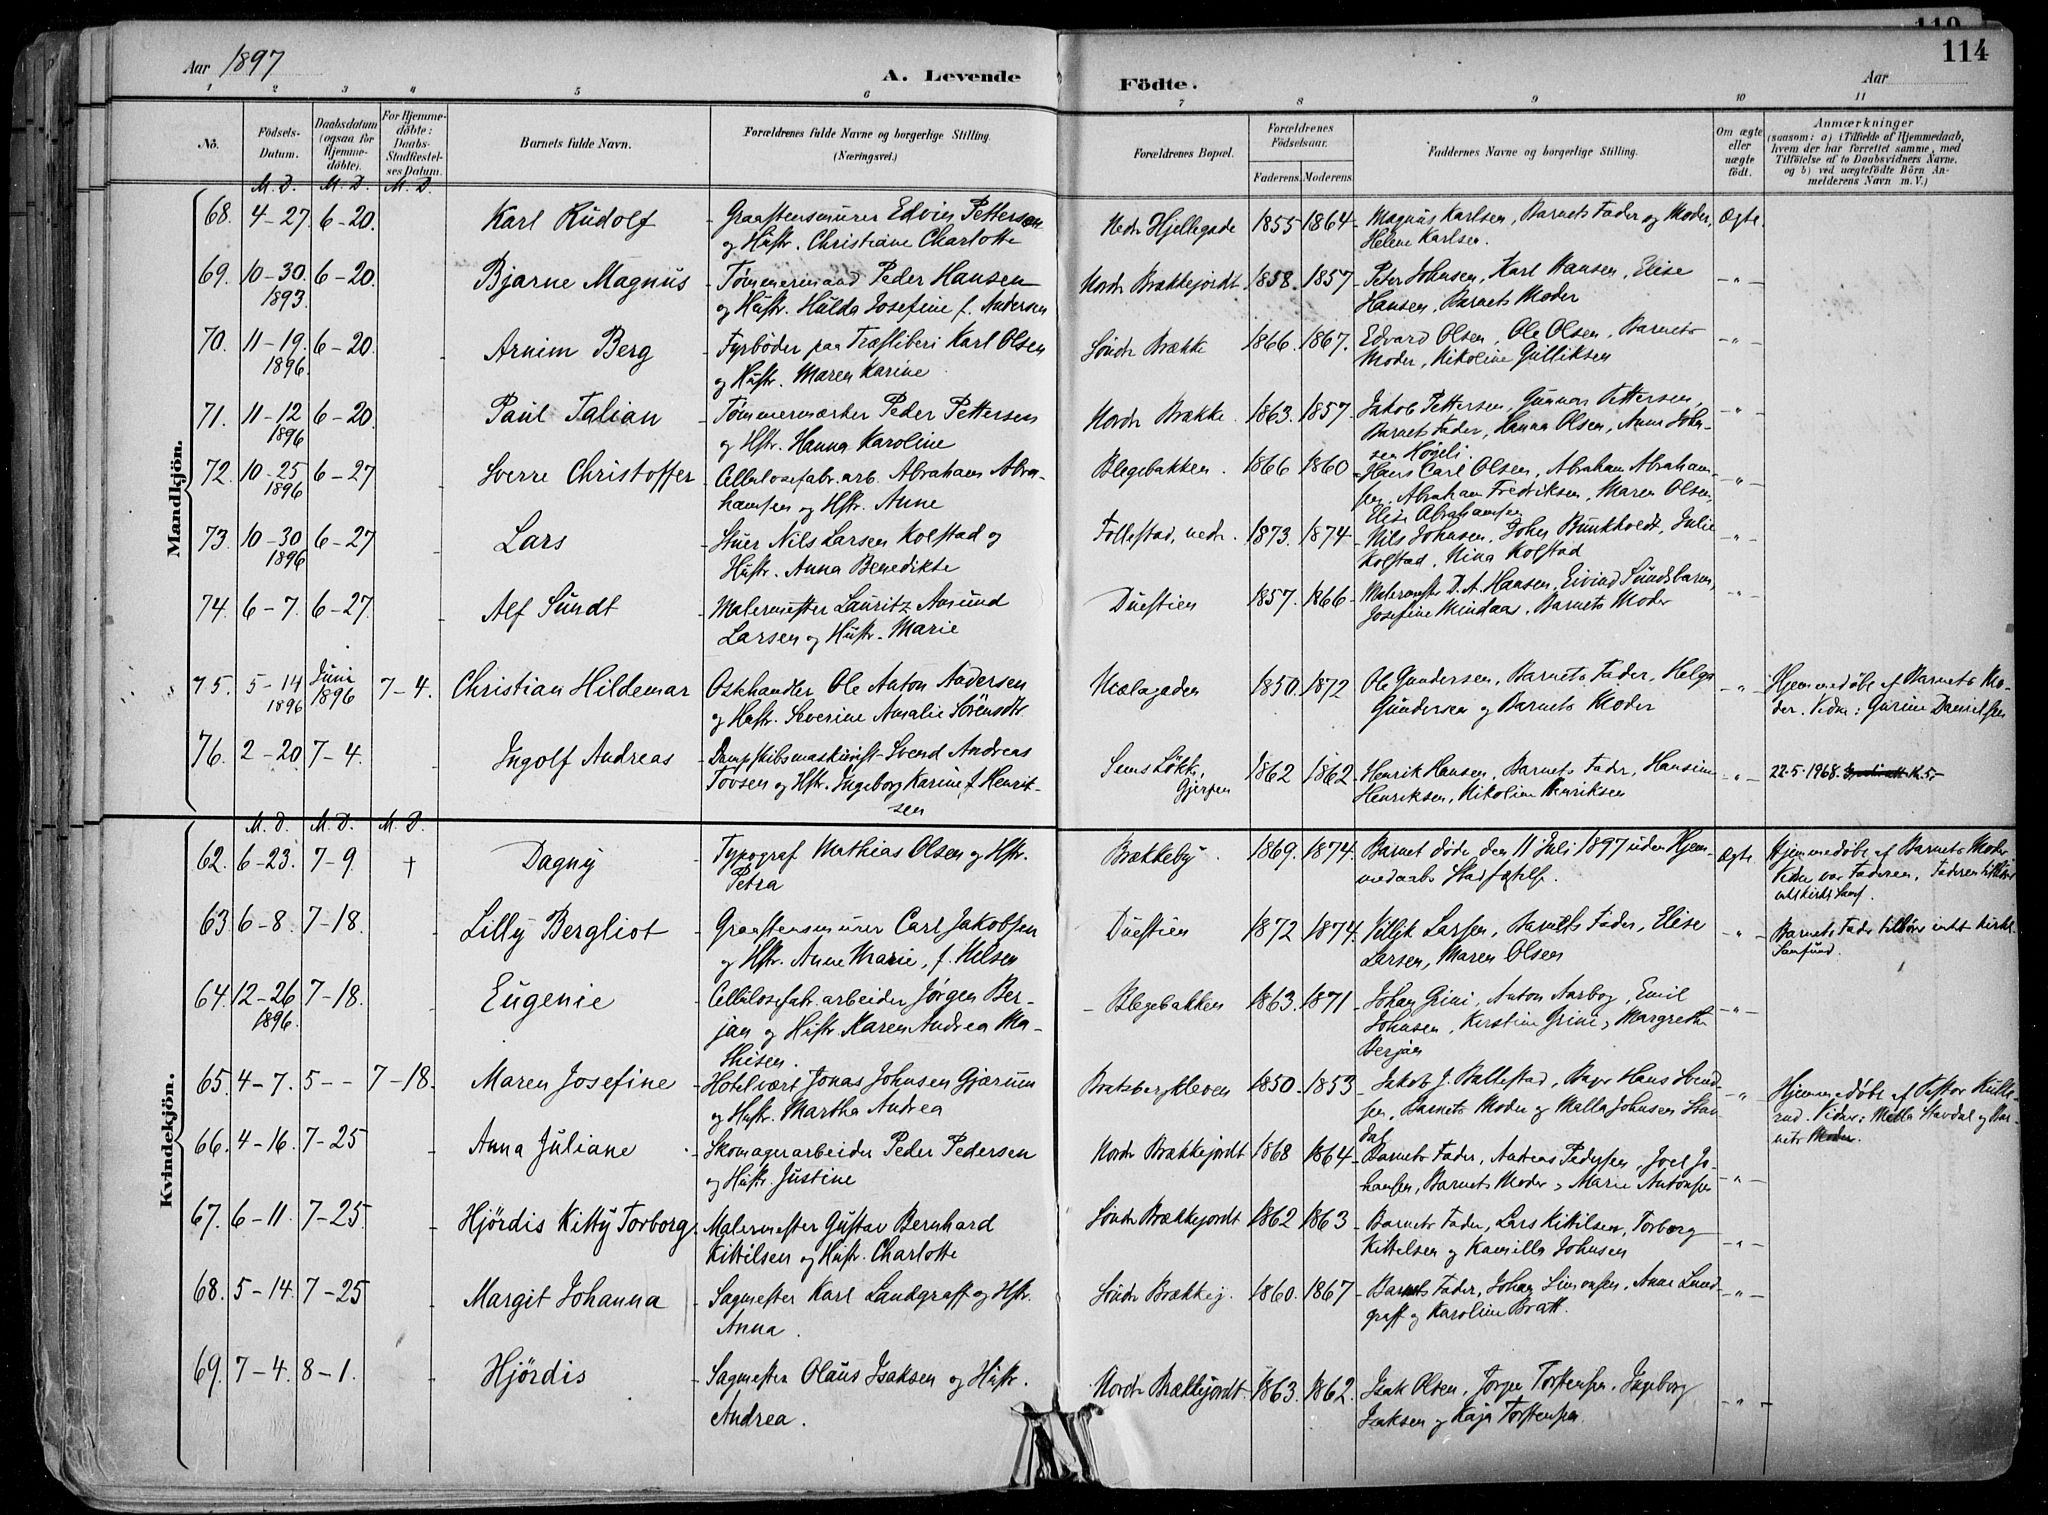 110
114
Aar 1897
A. Levende
Födte.
Aar
1 2 3 4 5 6 7 8 9 10 11
No.
Födsels-Datum.
Daabsdatum (ogsaa for Hjemme-döbte).
For Hjemme-döbte: Daabs-Stadfæstel-ses Datum.
Barnets fulde Navn.
Forældrenes fulde Navne og borgerlige Stilling. (Næringsvei.)
Forældrenes Bopæl.
Forældrenes Födselsaar.
Faderens. Moderens.
Faddernes Navne og borgerlige Stilling.
Om ægte eller uægte født.
Anmærkninger
(saasom: a) i Tilfælde af Hjemmedaab, hvem der har forrettet samme, med Tilföielse af to Daabsvidners Navne, og b) ved uægtefödte Börn An-melderens Navn m. V.)
M. D. M. D. M. D.
Mandkjön.
68. 4-27. 6-20. Karl Rudolf - Graastensmurer Edvin Pettersen Nedr Hjellegade 1855 1864 Magnus Karlsen, Barnets Fader og Moder, Ægte.
og Hustr. Christiane Charlotte Helene Karlsen.
69. 10-30. 6-20. Bjarne Magnus - Tømmermand Peder Hansen Nordr Brækkejordt 1858. 1857 Peter Johnsen, Karl Hansen, Elise - " -
1893. og Hustr. Hulda Josefine f. Andersen Hansen, Barnets Moder
70. 11-19. 6-20. Arnim Berg - Fyrbøder paa Træsliberi Karl Olsen Søndr Brække 1866. 1867. Edvard Olsen, Ole Olsen, Barnets - " -
1896. og Hustr. Maren Karine Moder, Nikoline Gulliksen
71. 11-12 6-20. Paul Talian - Tømmermærker Peder Pettersen Nordr Brække. 1863. 1857 Jakob Pettersen, Gunnar Pettersen, - " -
1896 og Hstr. Hanna Karoline Barnets Fader, Hanna Olsen, Anne John-
sen Høgeli.
72. 10-25 6-27 Sverre Christoffer - Cellulosefabr. arb. Abraham Abra- Blegebakken. 1866 1860 Hans Carl Olsen, Abraham Abraham- - " -
1896 hamsen og Hstr. Anne sen, Abraham Fredriksen, Maren Olsen,
Elise Abrahamsen
73. 10-30 6-27 Lars - Stuer Nils Larsen Kolstad og Follestad, nedr. 1873. 1874 Nils Johnsen, John Bunkholdt, Julie - " -
1896 Hustr. Anna Benedikte Kolstad, Nina Kolstad
74. 6-7. 6-27. Alf Sundt - Malermester Lauritz Amund Duestien 1857. 1866 Malermstr D. A. Hansen, Eivind Sundsbarm, - " -
Larsen og Hustr. Marie Josefine Mindaas, Barnets Moder
75. 5-14 Juni 7-4. Christian Hildemar - Ostehandler Ole Anton Andersen Mælagaden 1850. 1872 Ole Gundersen, Barnets Fader, Helga - " - Hjemmedøbt af Barnets Mo-
1896 1896 og Hustr. Severine Amalie Sörensdtr Gundersen og Barnets Moder der. Vidne: Gurine Danielsen
76. 2-20 7-4. Ingolf Andreas - Dampskibsmaskinist Svend Andreas Sems Løkke, 1862 1862 Henrik Hansen, Barnets Fader, Hansine - " - 22-5-1968.
Tovsen og Hstr. Ingeborg Karine f. Henrik- Gjerpen Henriksen, Nikoline Henriksen
sen
M. D. M. D. M. D.
Kvindekjön.
62. 6-23. 7-9. † Dagny - Typograf Mathias Olsen og Hstr. Brækkeby. 1869. 1874. Barnet døde den 11 Juli 1897 uden Hjem- Ægte Hjemmedøbt af Barnets Moder
Petra medaabs Stadfæstelse. Vidne var Faderen. Faderen
63. 6-8. 7-18. Lilly Bergliot - Graastensmurer Carl Jakobsen Duestien 1872 1874. Larsen, Barnets Fader, Elise - " - Barnets Fader tilhører intet kirke-
og Hstr. Anne Marie, f. Nilsen Larsen, Maren Olsen Samfund.
64. 12-26 7-18. Eugenie - Cellulosefabr. arbeider Jørgen Ber- - Blegebakken 1863. 1871 Johan Grini, Anton Aarbog, Emil - " -
1896. jan og Hustr. Karen Andrea Ma- Johnsen, Kirstine Grini, Margrethe
thisen. Berjan
65. 4-7. 5- - 7-18. Maren Josefine - Hotelvært Jonas Johnsen Gjærum Bratsbergkleven 1850. 1853 Jakob J. Ballestad, Hans Svend- - " - Hjemmedøbt af Pastor Kulle-
og Hustr. Martha Andrea sen, Barnets Moder og Malla Johnsen Stav- rud. Vidner: Malla Stavdal og Bar-
dal nets Moder.
66. 4-16. 7-25 Anna Juliane - Skomagerarbeider Peder Pedersen Nordr Brækkejordt 1868 1864 Barnets Fader, Andreas Pedersen, Joel Jo- - " -
og Hustr. Justine hansen, Barnets Moder, Marie Antonsen
67. 6-11. 7-25. Hjördis Kitty Torborg. Malermester Gustav Bernhard Søndr Brækkejordt 1862 1863 Barnets Fader, Lars Kittilsen, Torborg - " -
Kittilsen og Hustr. Charlotte Kittelsen og Kamilla Johnsen
68. 5-14. 7-25 Margit Johanna - Sagmester Karl Landgraff og Hstr. Søndr Brækkej. 1860. 1867 Barnets Fader, Johan Simonsen, Anne Land- - " -
Anna. graff og Karoline Bratt.
69. 7-4. 8-1. Hjördis - Sagmester Olaus Isaksen og Hustr. Nordr Brækkejordt. 1863. 1862. Isak Olsen, Jørgen Torstensen, Ingeborg - " -
Andrea. Isaksen og Kaja Torstensen.